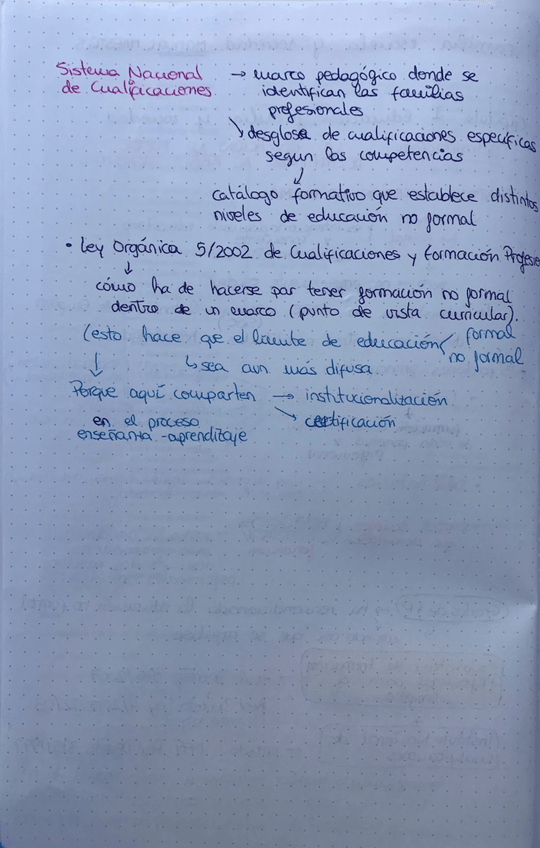 Sistema Nacional
de Cualificaciones
→ marco pedagógico donde se
identifican las familias
profesionales
↘ desglose de cualificaciones específicas
segun las competencias
↓
catálogo formativo que establece distintos
niveles de educación no formal
• Ley Orgánica 5/2002 de Cualificaciones y Formación Profesi
↓
cómo ha de hacerse par tener formación no formal
dentro de un marco (punto de vista curricular).
(esto hace que el límite de educación < formal
no formal
↳ sea aun más difusa
↓
Porque aquí comparten → institucionalización
↘ certificación
en el proceso
enseñanza-aprendizaje